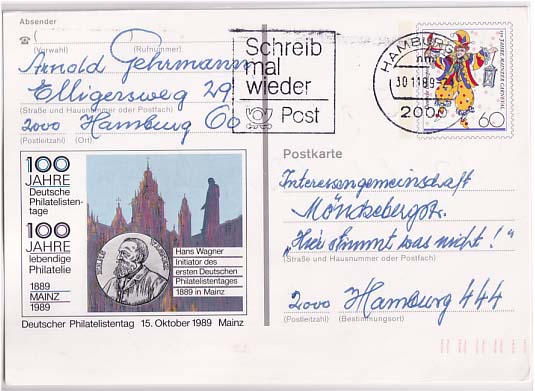 Absender
(
(Vorwahl) (Rufnummer)
Arnold Gehrmann
Elligersweg 29
(Straße und Hausnummer oder Postfach)
2000 Hamburg 60
(Postleitzahl) (Ort)
Schreib
mal
wieder
Post
HAMBURG
mm
30.1189-
2000
150 JAHRE MAINZER CARNEVAL
60
100
JAHRE
Deutsche
Philatelisten-
tage
100
JAHRE
lebendige
Philatelie
1889
MAINZ
1989
Hans Wagner
Initiator des
ersten Deutschen
Philatelistentages
1889 in Mainz
Deutscher Philatelistentag 15. Oktober 1989 Mainz
Postkarte
Interessengemeinschaft
Mönckebergstr.
„Hier stimmt was nicht!“
(Straße und Hausnummer oder Postfach)
2000 Hamburg 444
(Postleitzahl) (Bestimmungsort)